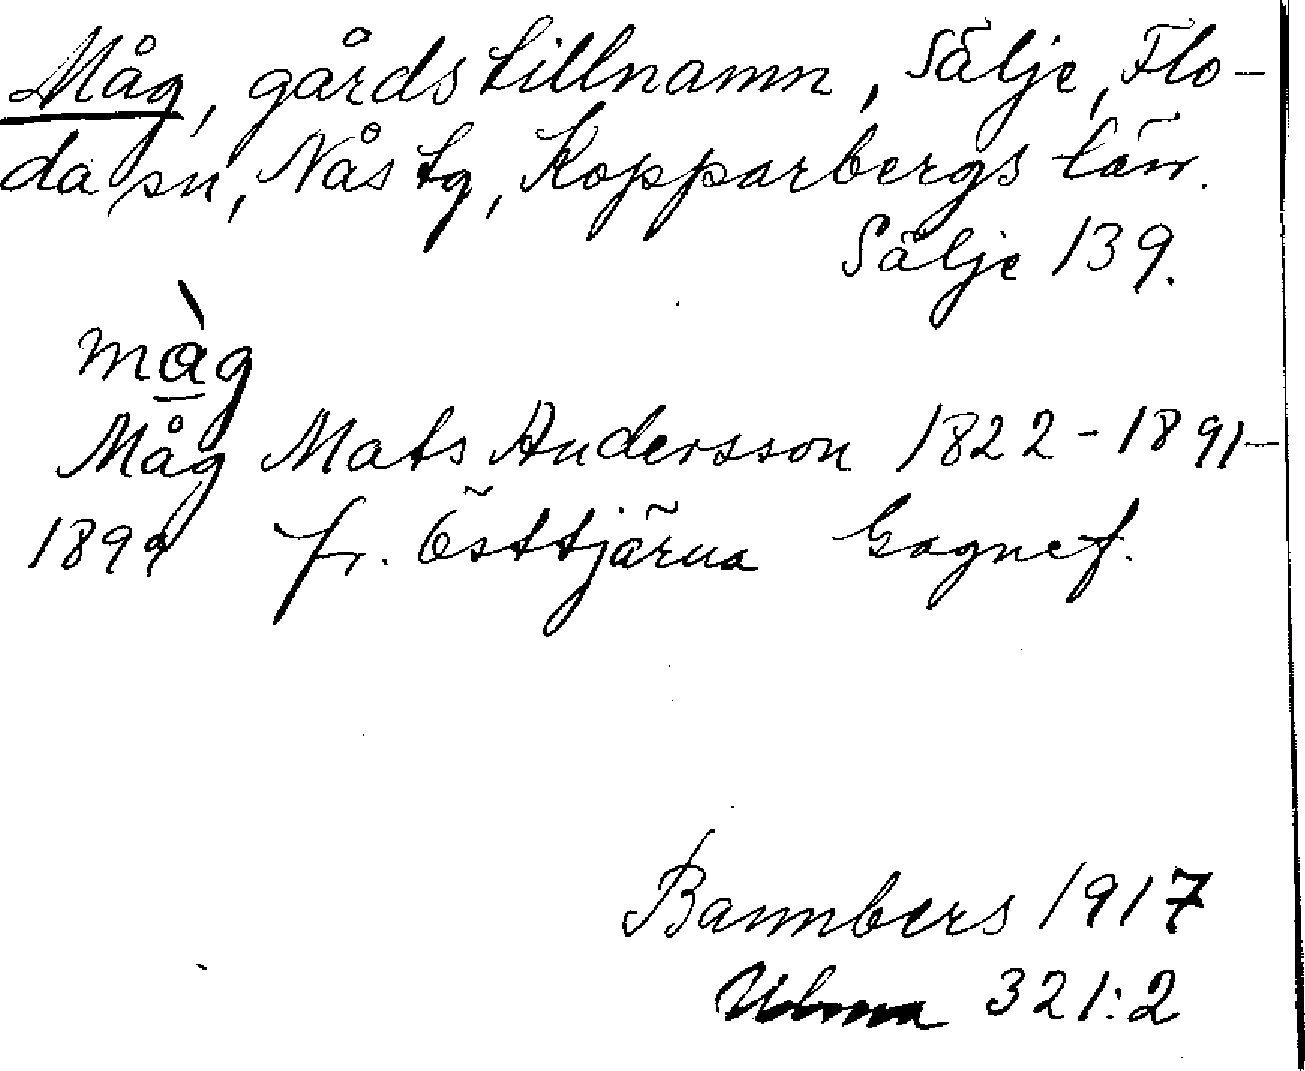 Måg, gårdstillnamn, Sälje, Flo-
da sn, Nås tg, Kopparbergs län.
Sälje 139.
màg
Måg Mats Andersson 1822-1891-
1899 fr. Östtjärna Gagnef.
Bannbers 1917
Ulma 321:2